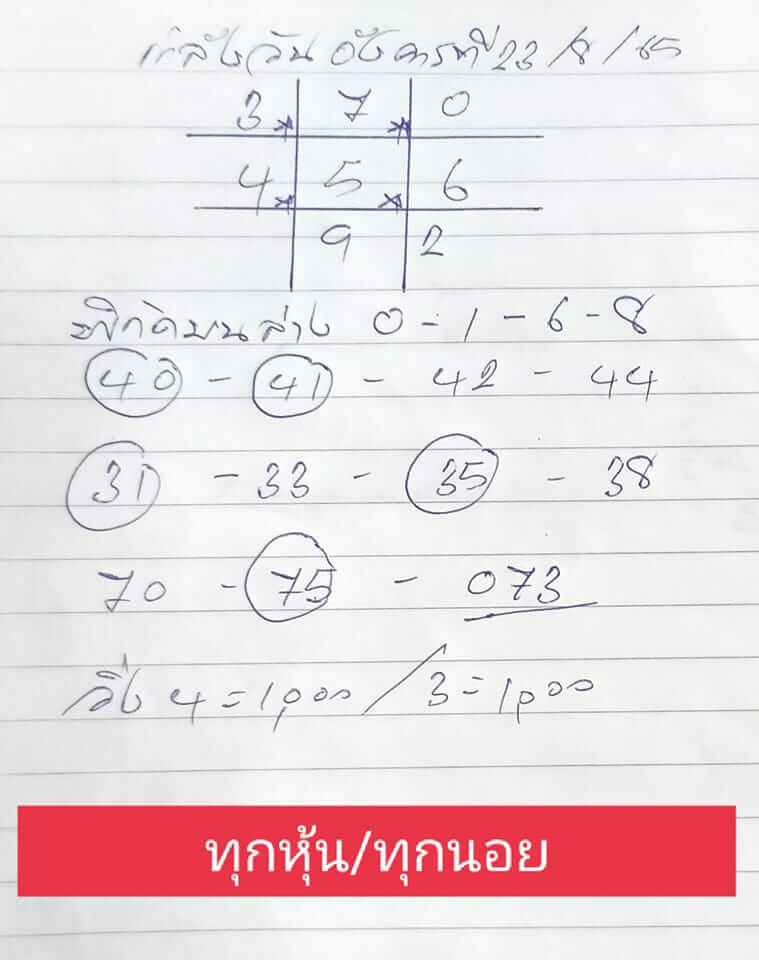 กำลังวัน อังคารที่ 23/8/65
3 7 0
4 5 6
9 2
พิกัดบนล่าง 0-1-6-8
40 - 41 - 42 - 44
31 - 33 - 35 - 38
70 - 75 - 073
วิ่ง 4=1,000 / 3=1,000
ทุกหุ้น/ทุกนอย